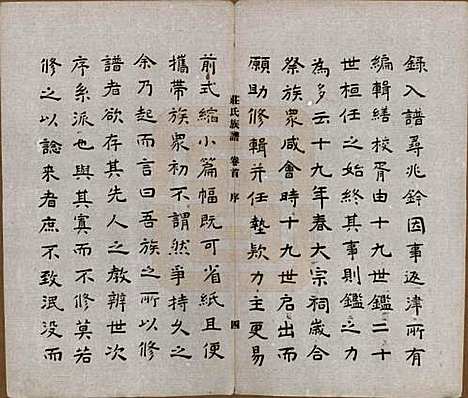 錄入譜尋兆鈐因事返津所有
編輯繕校胥由十九世鑑二十
世桓任之始終其事則鑑之力
為多云十九年春大宗祠歲合
祭族眾咸會時十九世启出而
願助修輯并任墊欵力主更易
莊氏族譜 卷首 序 四
前式縮小篇幅既可省紙且便
攜帶族眾初不謂然爭持久之
余乃起而言曰吾族之所以修
譜者欲存其先人之教辨世次
序系派也與其寘而不修莫若
修之以諗來者庶不致泯没而